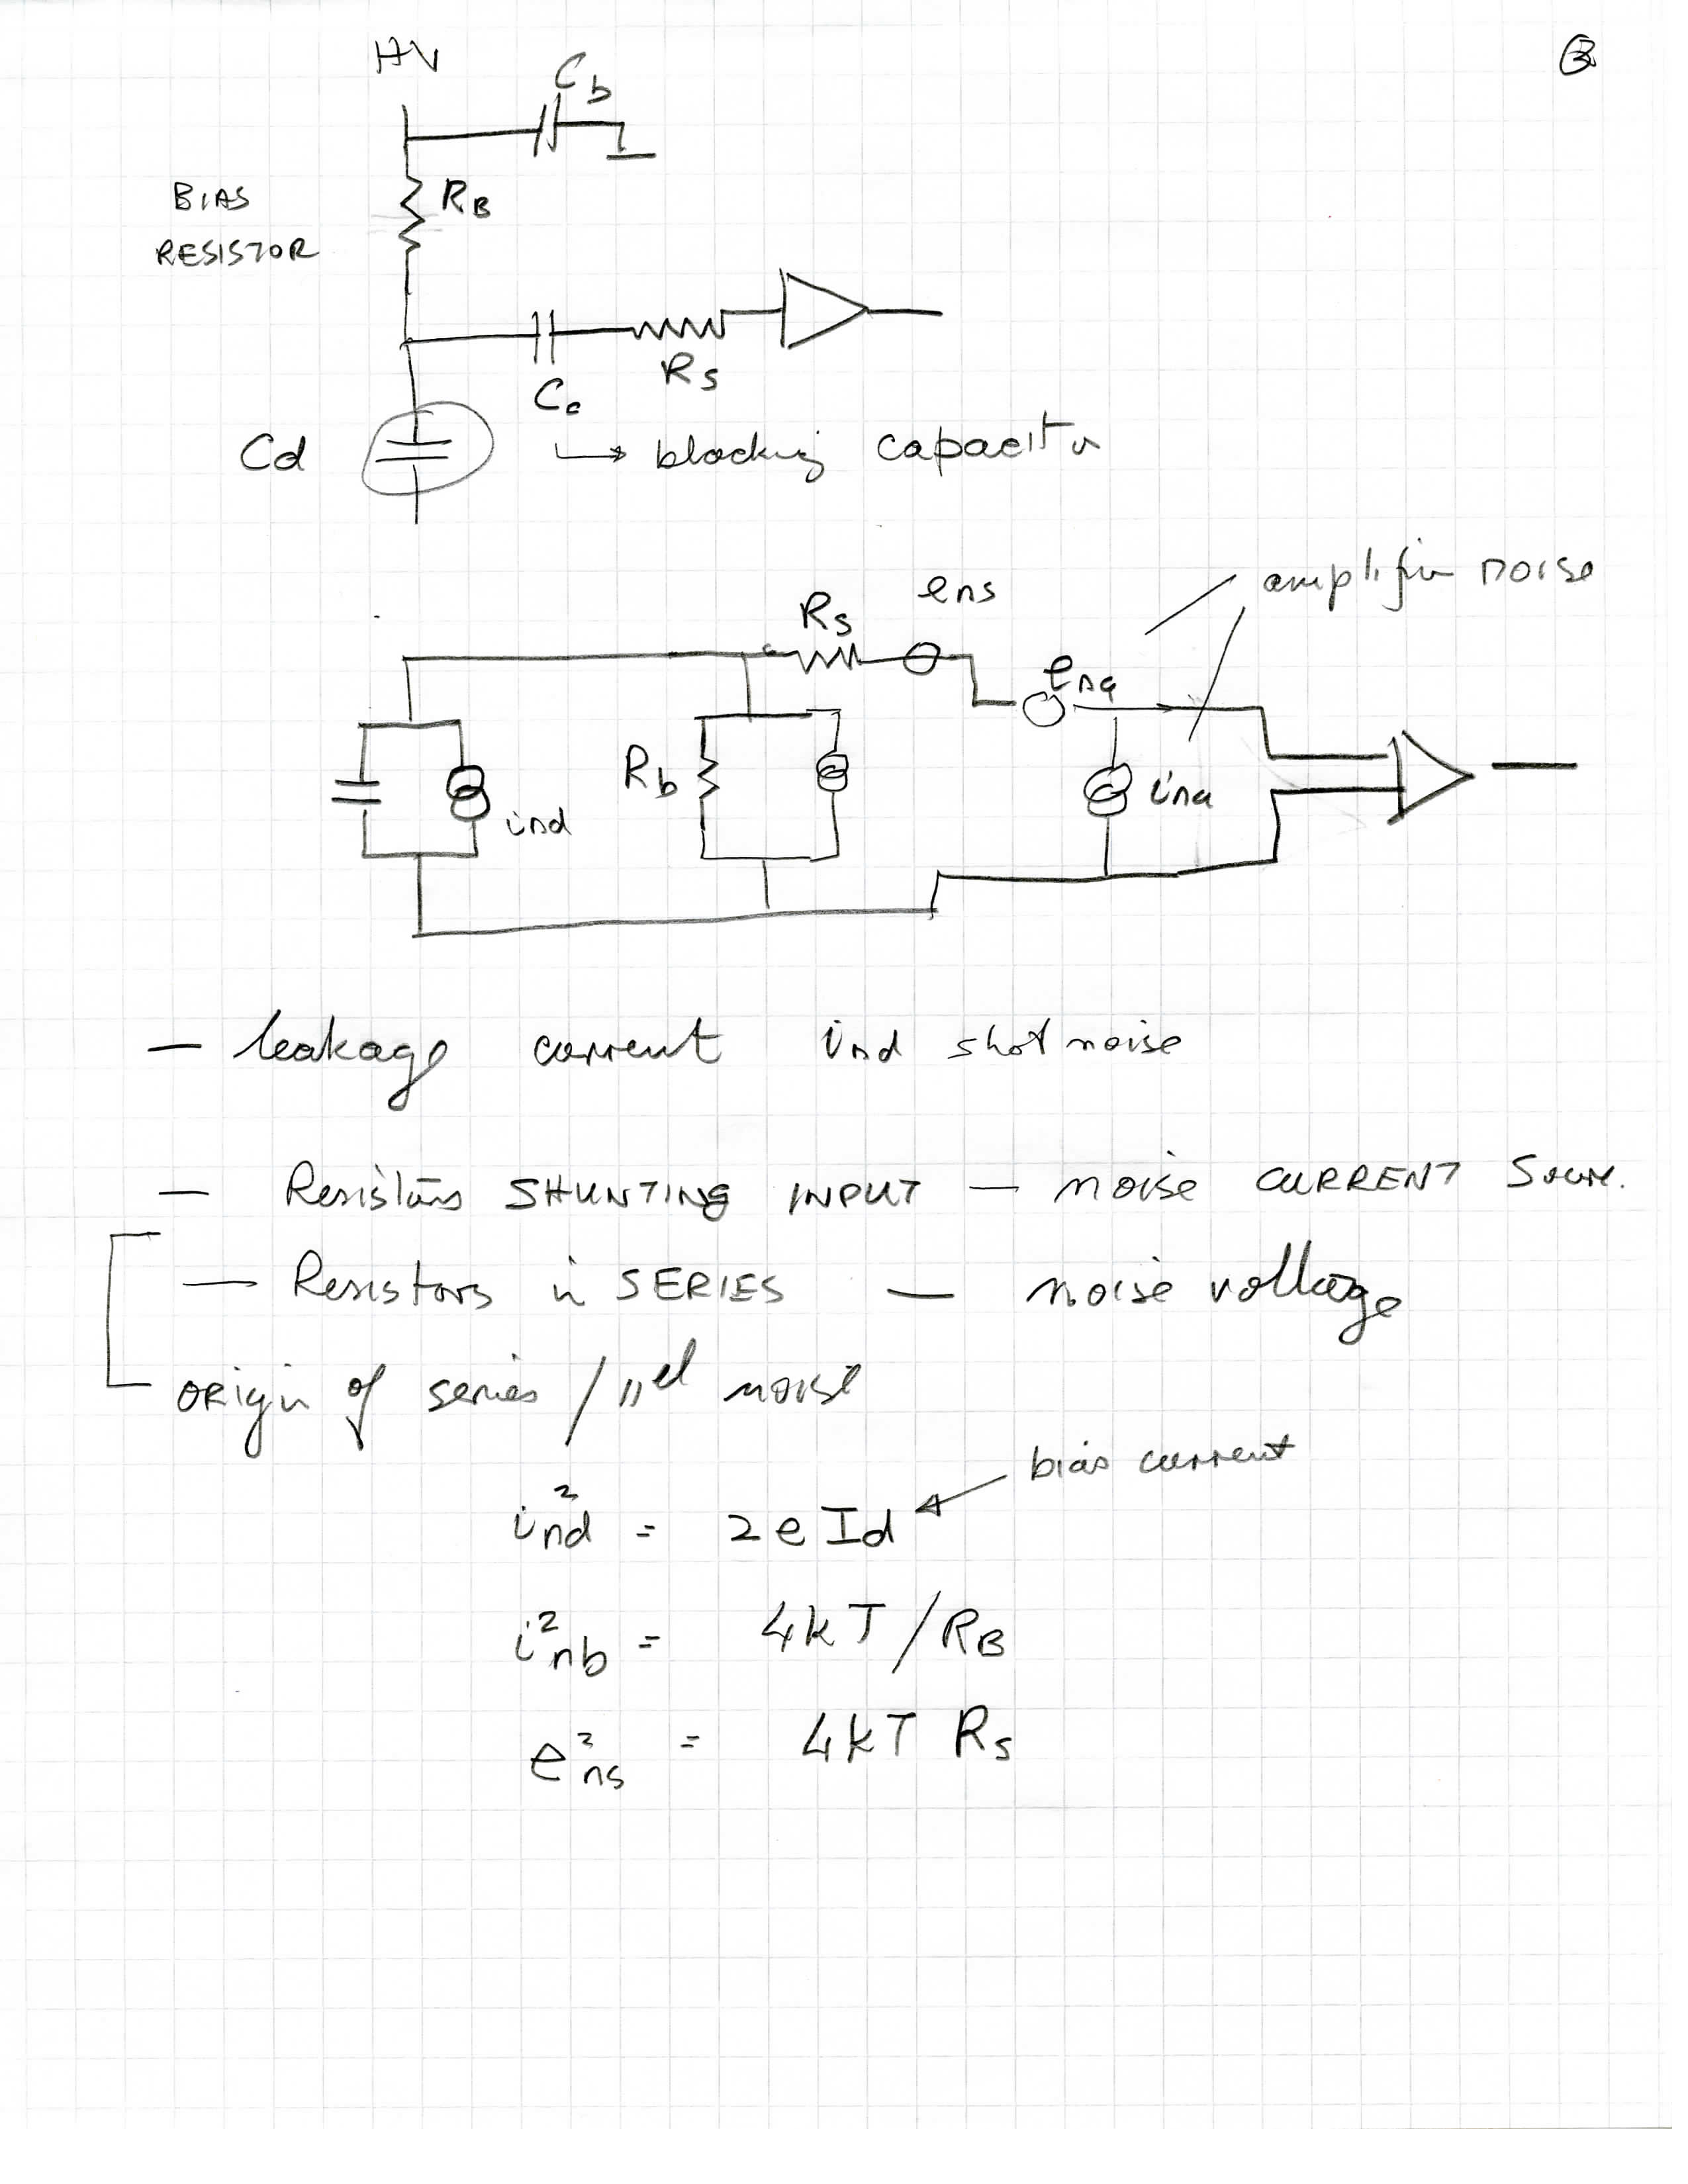 HV
Cb
BIAS
RESISTOR
RB
Rs
Cc
Cd
→ blocking capacitor
amplifier noise
Rs
ens
ena
Rb
ind
ina
— leakage current ind shot noise
— Resistors SHUNTING INPUT — noise CURRENT Source.
— Resistors in SERIES — noise voltage
origin of series / ||el noise
bias current
i²nd = 2e Id
i²nb = 4kT/RB
e²ns = 4kT Rs